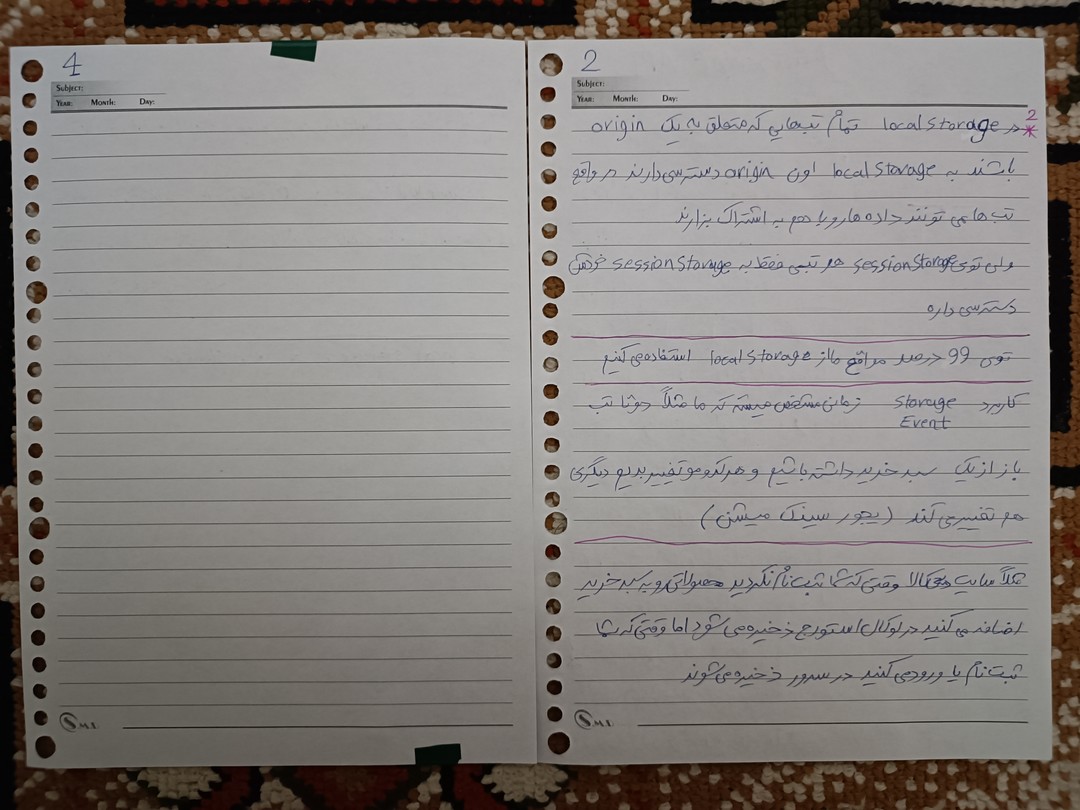 4
Subject:
Year: Month: Day:
S M.I.
2
Subject:
Year: Month: Day:
2
* در local storage تمام تب‌هایی که متعلق به یک origin
باشند به local storage اون origin دسترسی دارند در واقع
تب‌ها می تونند داده هارو با هم به اشتراک بزارند
ولی توی session storage هر تبی فقط به session storage خودش
دسترسی داره
توی 99 درصد مواقع ما از local storage استفاده می کنیم
کاربرد Storage Event زمانی مشخص میشه که ما مثلاً دوتا تب
باز از یک سبد خرید داشته باشیم و هر کدومو تغییر بدیم دیگری
هم تغییر می کند (یجور سینک میشن)
مثلاً سایت دیجی کالا وقتی که شما ثبت نام نکردید محصولاتی رو به سبد خرید
اضافه می کنید در لوکال استورج ذخیره می شود اما وقتی که شما
ثبت نام یا ورود می کنید در سرور ذخیره می شوند
S M.I.